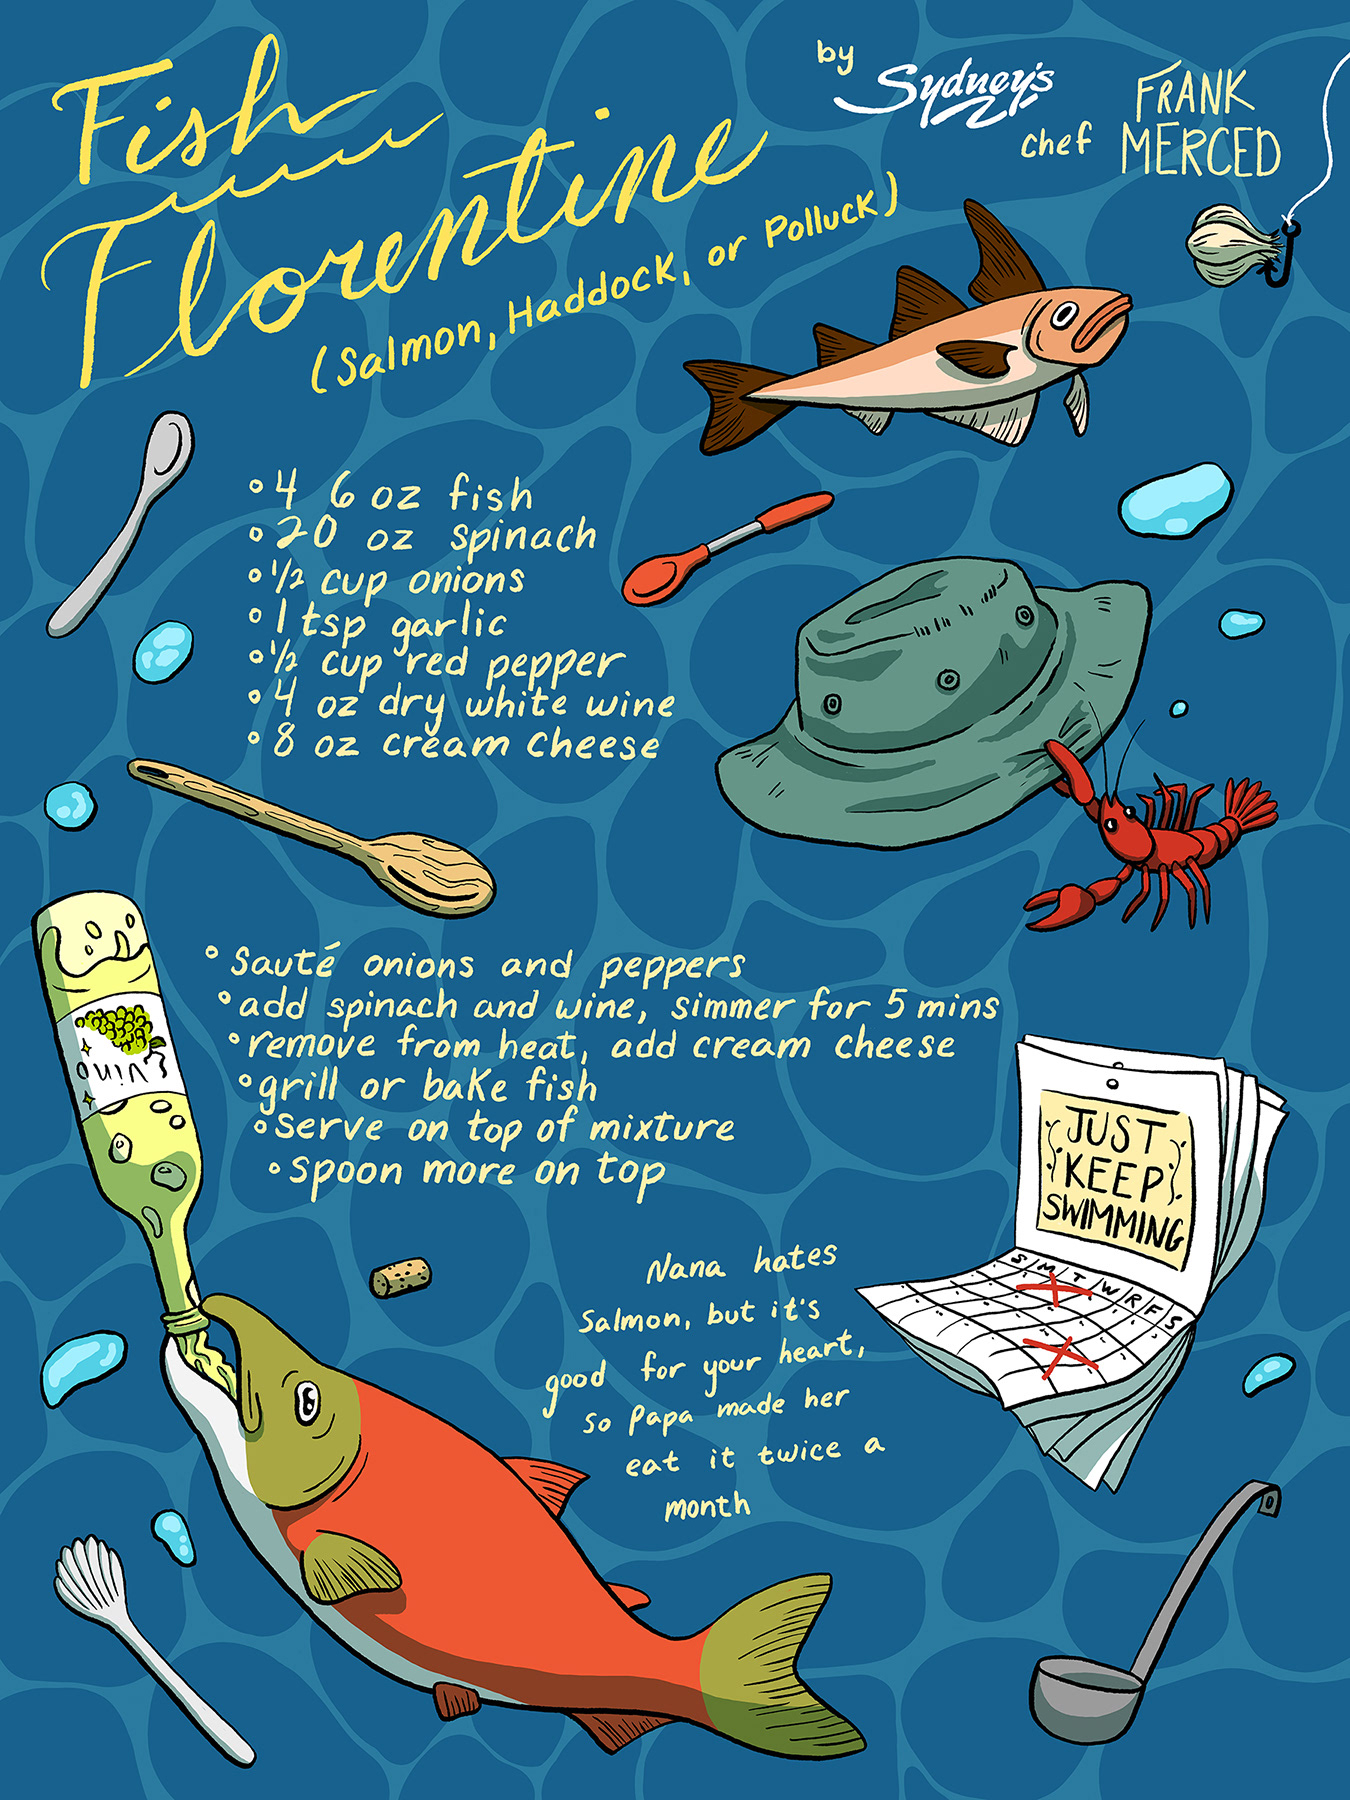 Fish
Florentine
(Salmon, Haddock, or Polluck)
by Sydney's
chef FRANK
MERCED
4 6 oz fish
20 oz spinach
1/2 cup onions
1 tsp garlic
1/2 cup red pepper
4 oz dry white wine
8 oz cream cheese
Sauté onions and peppers
add spinach and wine, simmer for 5 mins
remove from heat, add cream cheese
grill or bake fish
Serve on top of mixture
Spoon more on top
Vino
JUST
KEEP
SWIMMING
S M T W R F S
Nana hates
Salmon, but it's
good for your heart,
so Papa made her
eat it twice a
month